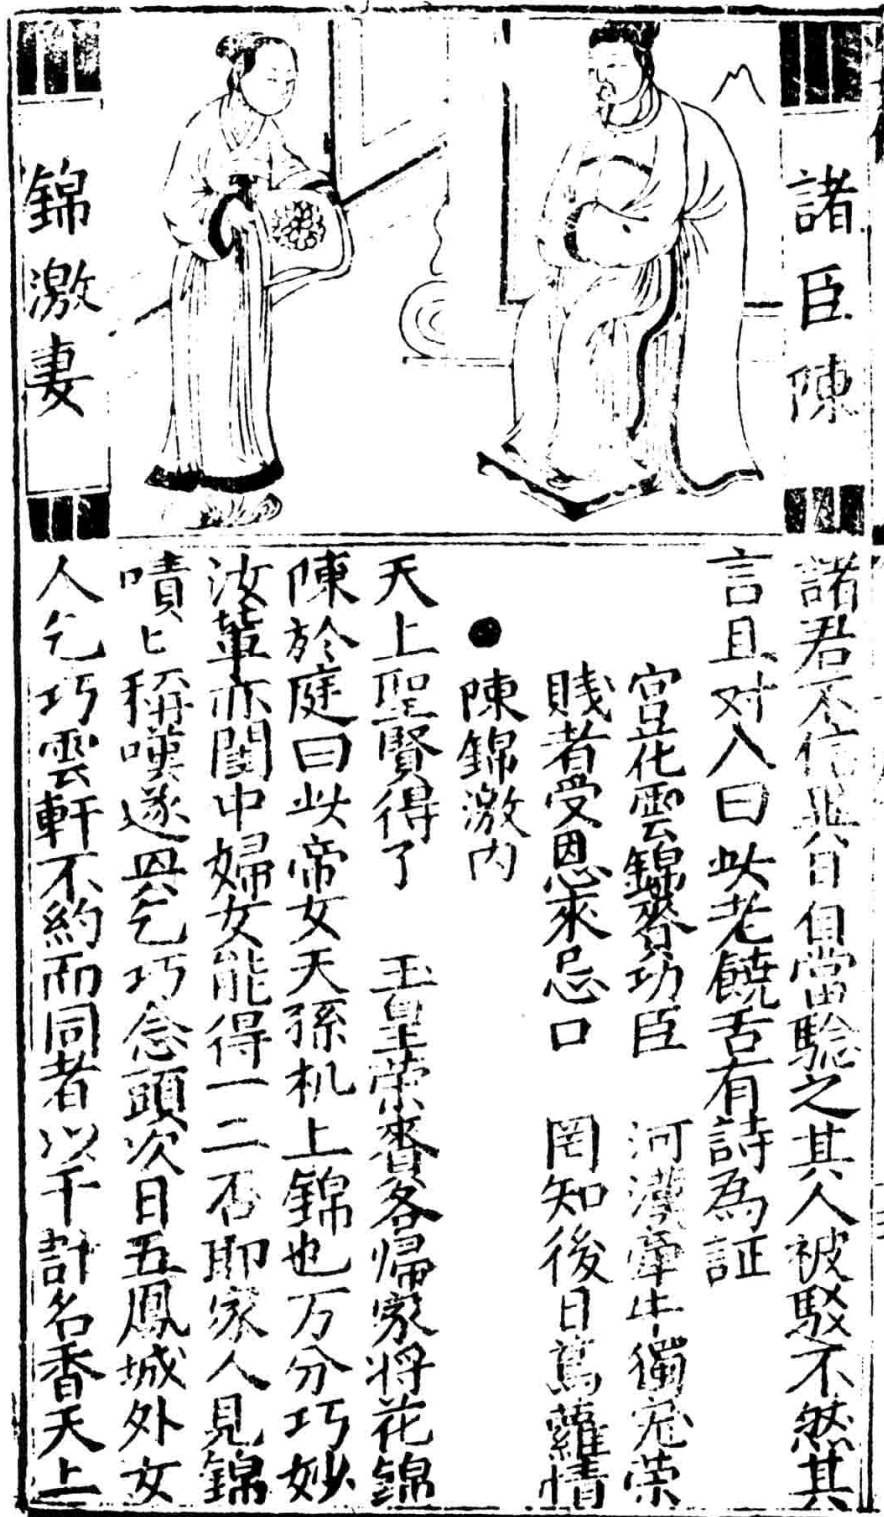 諸臣陳
錦激妻
諸君不信異日自當驗之其人被駁不然其
言且对人曰此老饒舌有詩為証
宮花雲錦賚功臣 河漢牽牛獨冠荣
賎者受恩來忌口 罔知後日蔦蘿情
●陳錦激內
天上聖賢得了 玉皇荣賚各歸家将花錦
陳於庭曰此帝女天孫机上錦也万分巧妙
汝輩亦閨中婦女能得一二否耶家人見錦
嘖匕稱嘆遂思乞巧念頭次日五鳳城外女
人乞巧雲軒不約而同者以千計名香天上